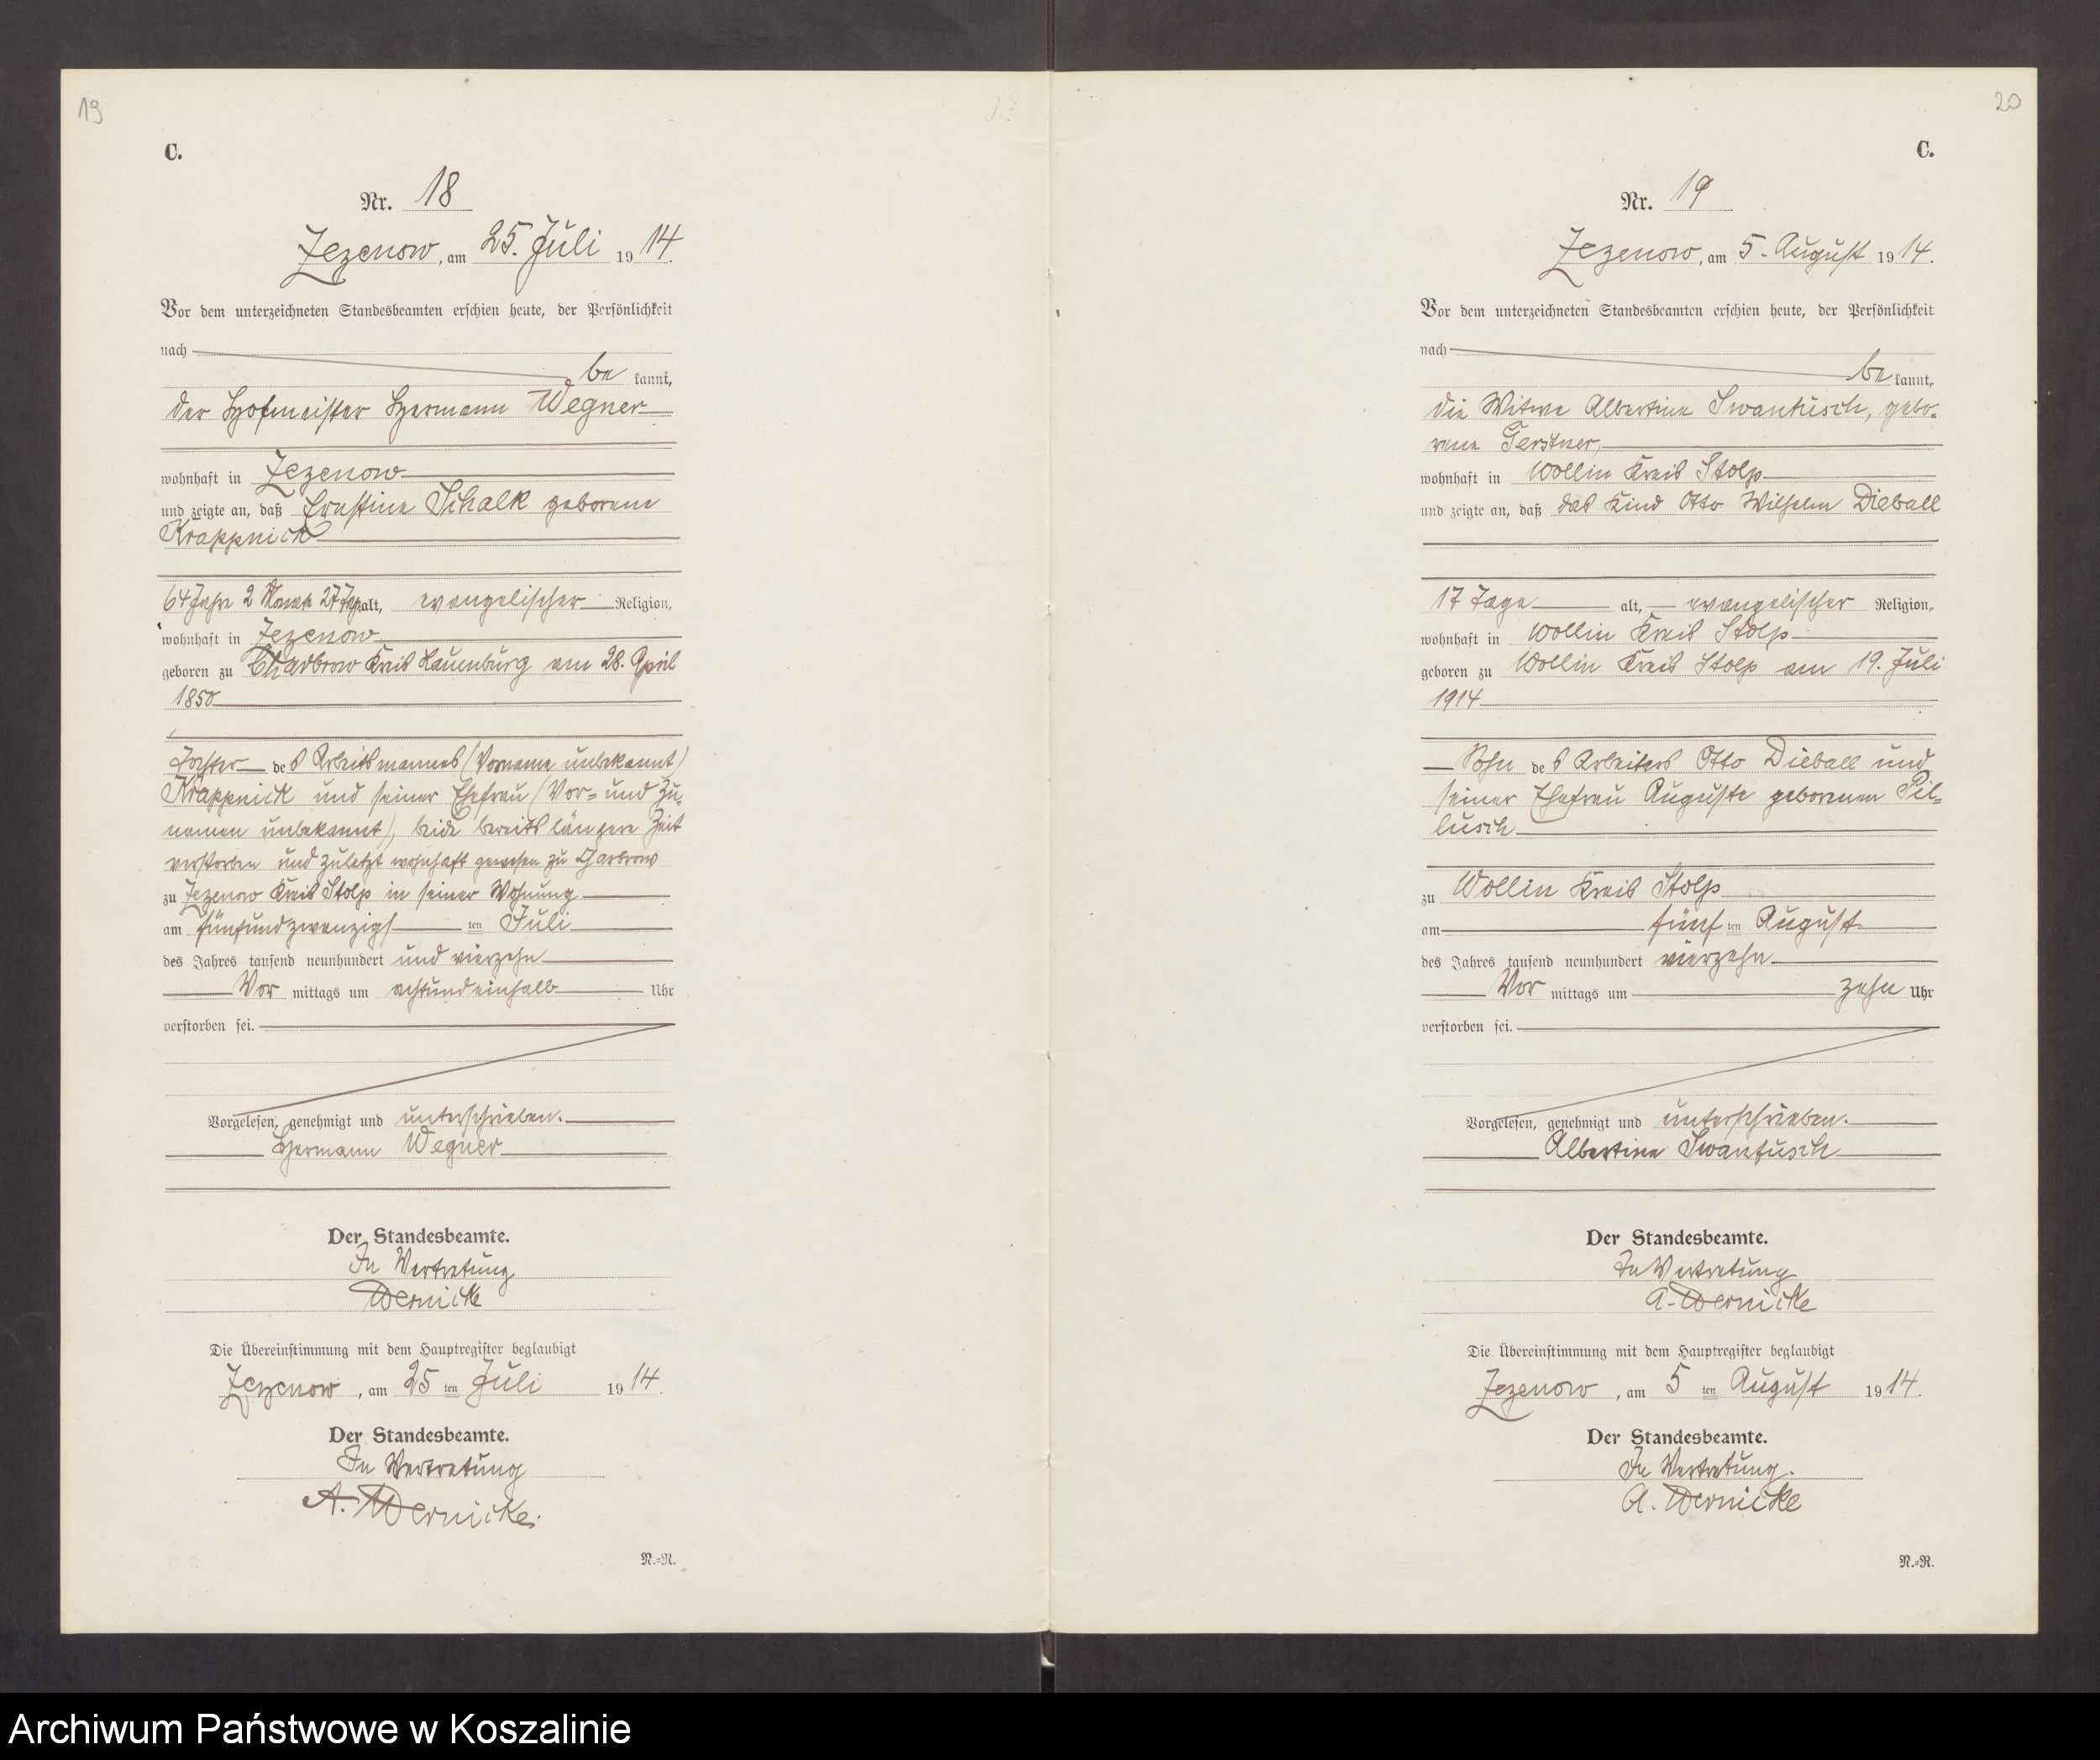 19
C.
Nr. 18
Zezenow, am 25. Juli 1914.
Vor dem unterzeichneten Standesbeamten erschien heute, der Persönlichkeit
nach
be kannt,
der Hofmeister Hermann Wegner
wohnhaft in Zezenow
und zeigte an, daß Ernstine Schalk geborene
Krappnick
64 Jahre 2 Monate 27 Tage alt, evangelischer Religion,
wohnhaft in Zezenow
geboren zu Charbrow Kreis Lauenburg am 28. April
1850
Tochter des Arbeitsmannes (Vorname unbekannt)
Krappnick und seiner Ehefrau (Vor- und Zu-
namen unbekannt), beide bereits längere Zeit
verstorben und zuletzt wohnhaft gewesen zu Charbrow
zu Zezenow Kreis Stolp in seiner Wohnung
am fünfundzwanzigs ten Juli
des Jahres tausend neunhundert und vierzehn
Vor mittags um achtundeinhalb Uhr
verstorben sei.
Vorgelesen, genehmigt und unterschrieben.
Hermann Wegner
Der Standesbeamte.
In Vertretung
Wernicke
Die Übereinstimmung mit dem Hauptregister beglaubigt
Zezenow, am 25 ten Juli 1914.
Der Standesbeamte.
In Vertretung
A. Wernicke.
N.-R.
20
C.
Nr. 19
Zezenow, am 5. August 1914.
Vor dem unterzeichneten Standesbeamten erschien heute, der Persönlichkeit
nach
be kannt,
die Witwe Albertine Swantusch, gebo-
rene Gerstner,
wohnhaft in Wollin Kreis Stolp
und zeigte an, daß das Kind Otto Wilhelm Dieball
17 Tage alt, evangelischer Religion,
wohnhaft in Wollin Kreis Stolp
geboren zu Wollin Kreis Stolp am 19. Juli
1914
Sohn des Arbeiters Otto Dieball und
seiner Ehefrau Auguste geborenen Pil-
lusch
zu Wollin Kreis Stolp
am fünf ten August
des Jahres tausend neunhundert vierzehn
Vor mittags um zehn Uhr
verstorben sei.
Vorgelesen, genehmigt und unterschrieben.
Albertine Swantusch
Der Standesbeamte.
In Vertretung
A. Wernicke
Die Übereinstimmung mit dem Hauptregister beglaubigt
Zezenow, am 5 ten August 1914.
Der Standesbeamte.
In Vertretung.
A. Wernicke
N.-R.
Archiwum Państwowe w Koszalinie